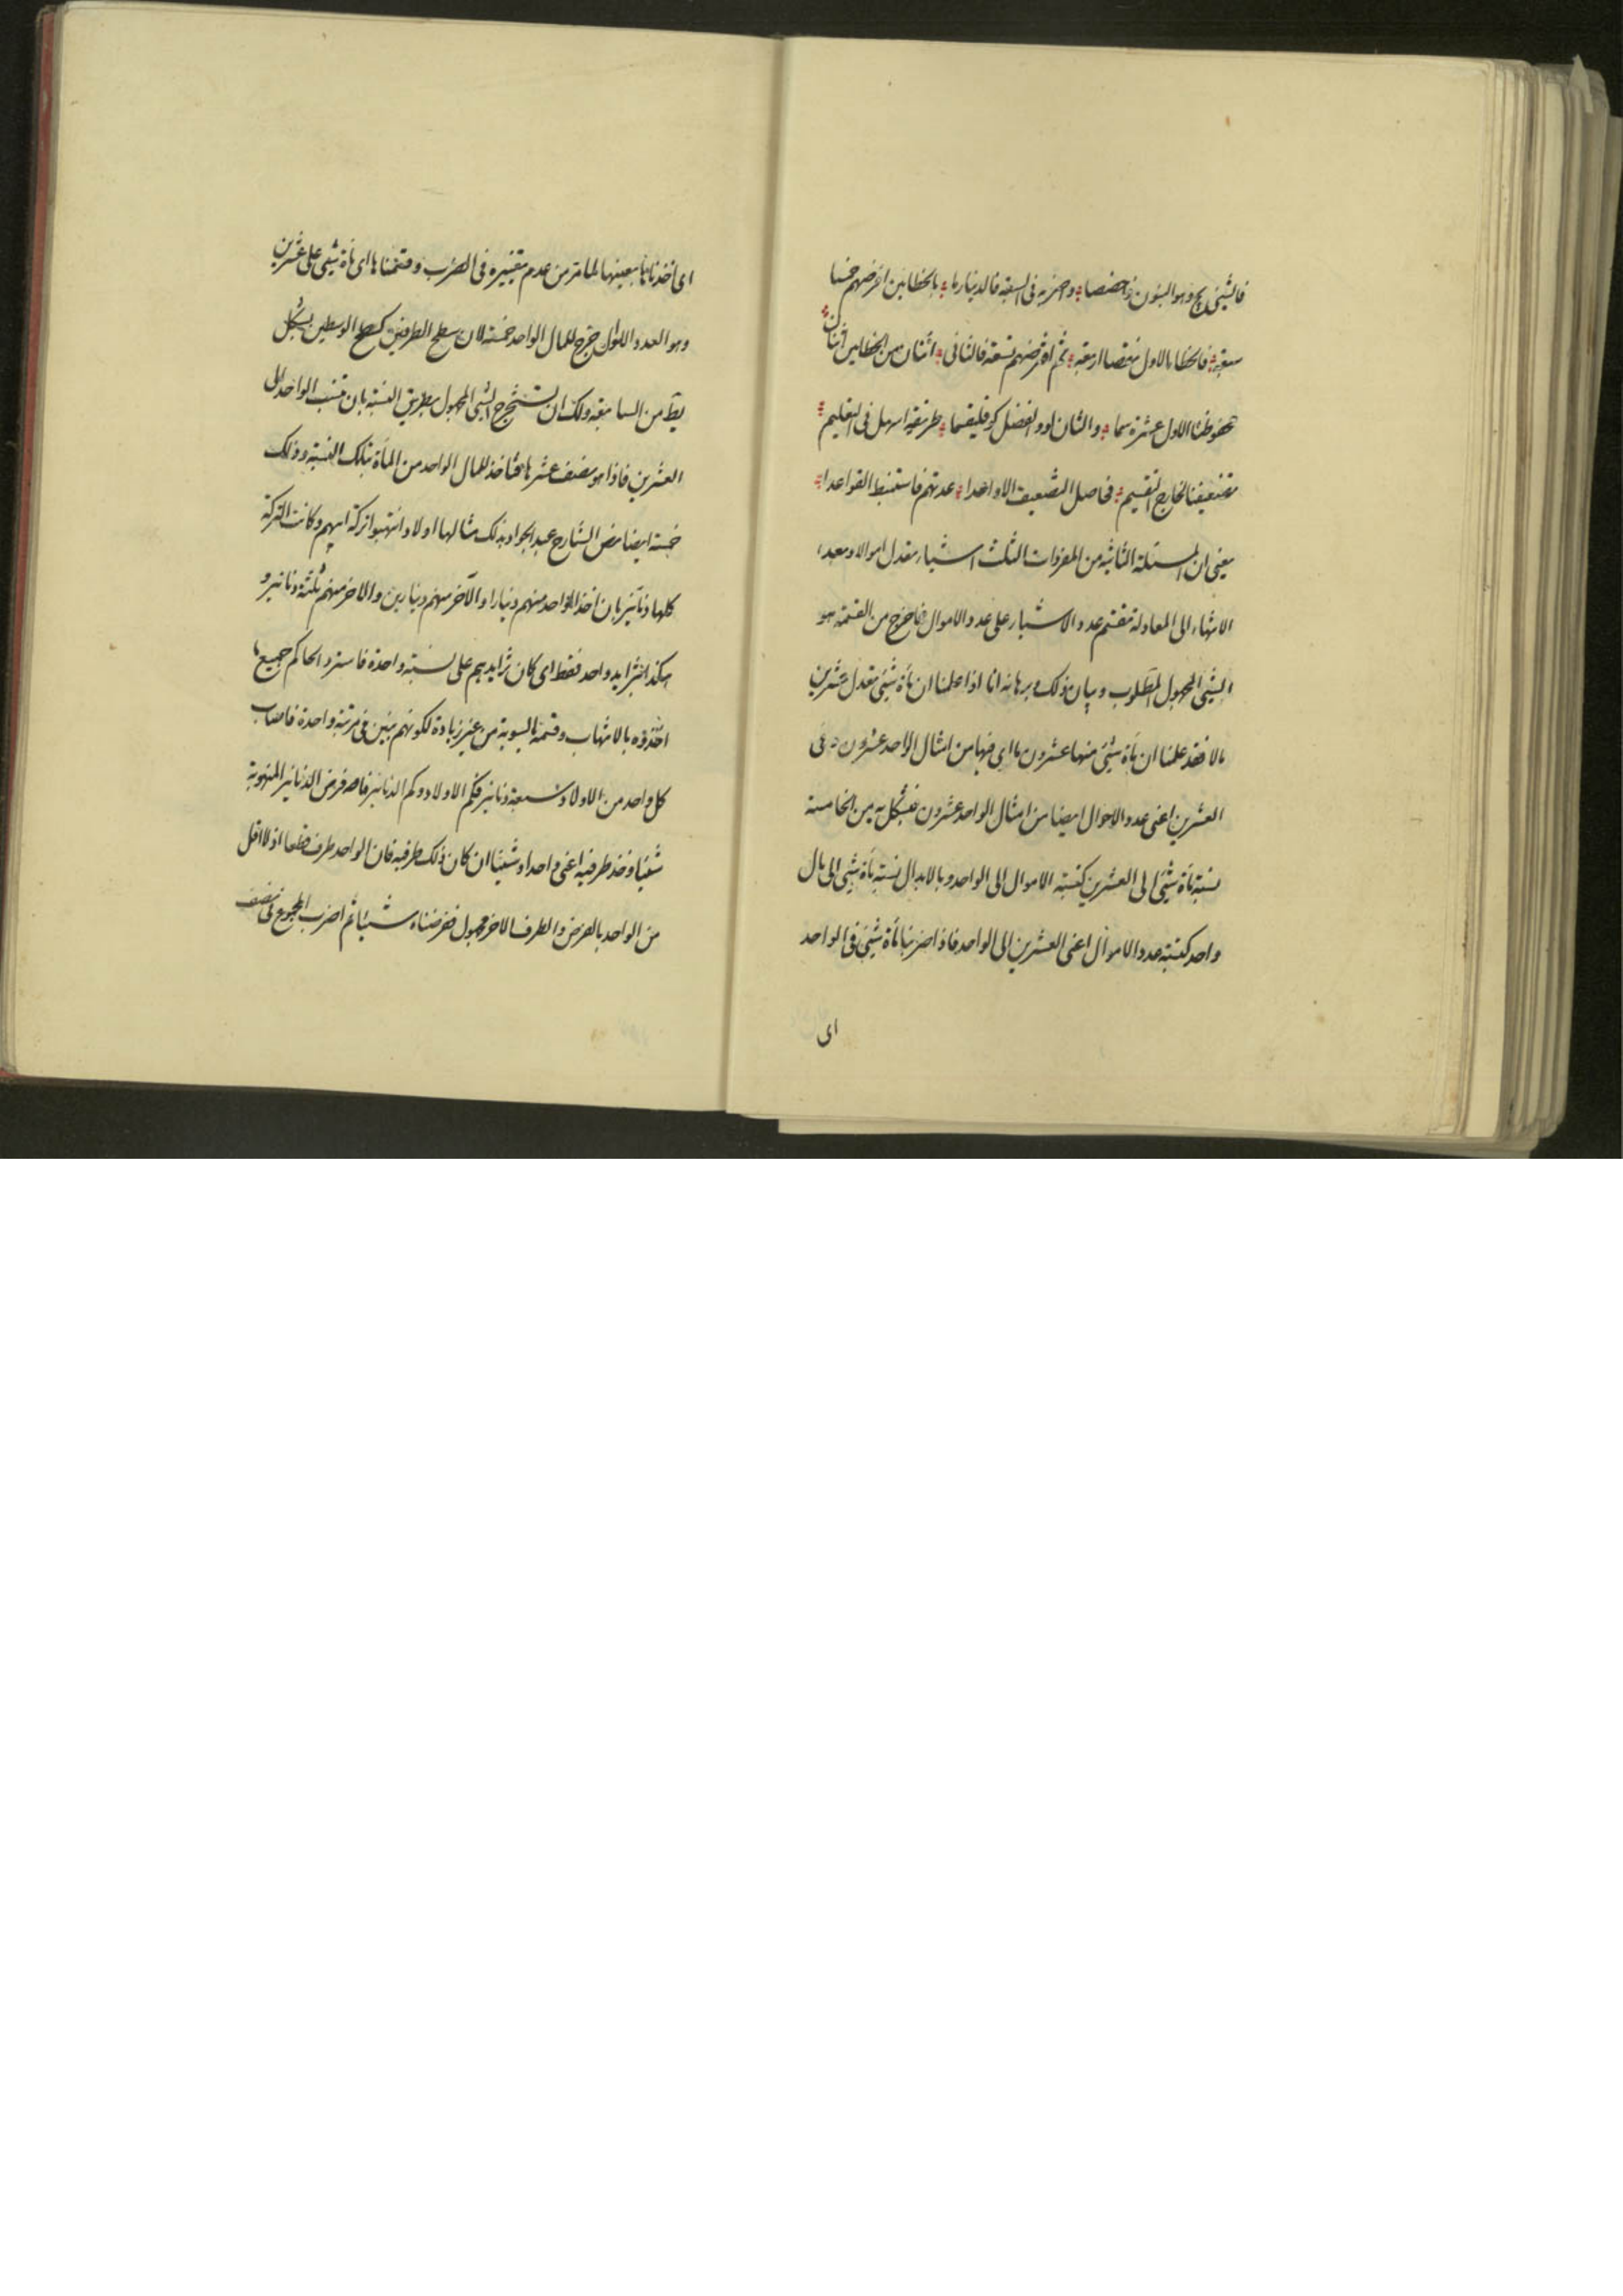 فالشئ يج وهو البنون فاحفصا واضربه فى السبعة فالدنانير ما بالخطاين افرضهم خمسا
سبعة فالخطا بالاول نقصا اربعة ثم افرضهم تسعة فالثانى اثنان من الخطاين اثنان
محفوظنا الاول عشرة سما والثان لو والفضل كو فليقسما طريقة اسهل فى التعليم
تضعيفنا لخارج التقسيم فحاصل التضعيف الا واحدا عدتهم فاستنبط القواعدا
يعنى ان المسئلة الثانية من المفردات الثلث اشياء تعدل اموالا وبعد
الانتهاء الى المعادلة تقسم عدد الاشياء على عدد الاموال فما خرج من القسمة هو
الشئ المجهول المطلوب وبيان ذلك وبرهانه انا اذا علمنا ان مأة شئ تعدل عشرين
مالا فقد علمنا ان مأة شئ منها عشرون مالا اى فيها من امثال الواحد عشرون وفى
العشرين اعنى عدد الاموال ايضا من امثال الواحد عشرون فبشكل يه من الخامسة
نسبة مأة شئ الى العشرين كنسبة الاموال الى الواحد وبالابدال نسبة مأة شئ الى مال
واحد كنسبة عدد الاموال اعنى العشرين الى الواحد فاذا ضربنا مأة شئ فى الواحد
اى
اى اخذناها بعينها لما مر من عدم تغييره فى الضرب وقسمناها اى مأة شئ على عشرين
وهو العدد الاول خرج للمال الواحد خمسة لان سطح الطرفين كسطح الوسطين بشكل
يط من السابعة ولك ان تستخرج الشئ المجهول بطريق النسبة بان تنسب الواحد الى
العشرين فاذا هو نصف عشرها فتاخذ للمال الواحد من المأة بتلك النسبة وذلك
خمسة ايضا نص الشارح عبد الجواد بذلك مثالها اولاد انتهبوا تركة ابيهم وكانت التركة
كلها دنانير بان اخذ الواحد منهم دينارا والآخر منهم دينارين والاخر منهم ثلثة دنانير و
هكذا بتزايد واحد فقط اى كان تزايدهم على نسبة واحدة فاسترد الحاكم جميع ما
اخذوه بالانتهاب وقسمه بالسوية من غير زيادة لكونهم بنين فى مرتبة واحدة فاصاب
كل واحد من الاولاد سبعة دنانير فكم الاولاد وكم الدنانير فاصه فرض الدنانير المنهوبة
شيئا وخذ طرفيه اعنى واحدا وشيئا ان كان ذلك طرفيه فان الواحد طرف قطعا اذ لا اقل
من الواحد بالفرض والطرف الاخر مجهول ففرضناه شيئا ثم اضرب المجموع فى نصف